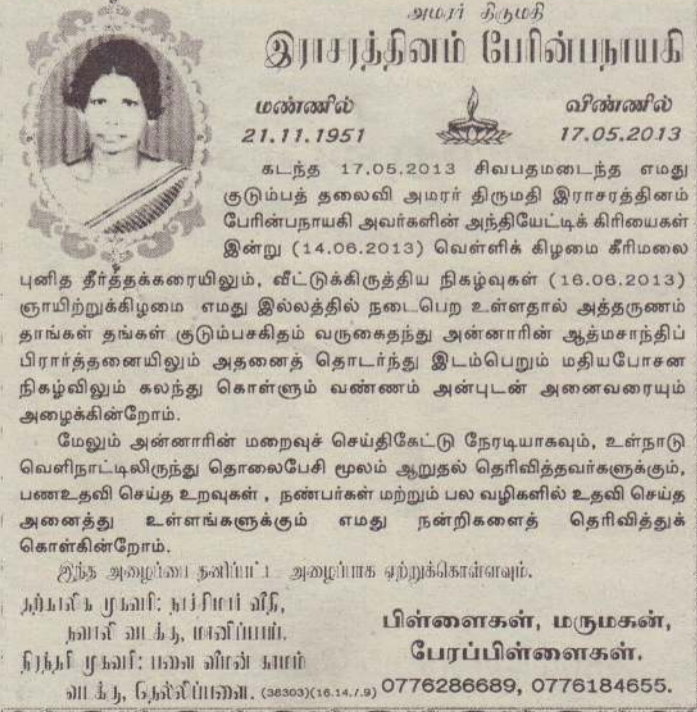 அமரர் திருமதி
இராசரத்தினம் பேரின்பநாயகி
மண்ணில் விண்ணில்
21.11.1951 17.05.2013
கடந்த 17.05.2013 சிவபதமடைந்த எமது
குடும்பத் தலைவி அமரர் திருமதி இராசரத்தினம்
பேரின்பநாயகி அவர்களின் அந்தியேட்டிக் கிரியைகள்
இன்று (14.06.2013) வெள்ளிக் கிழமை கீரிமலை
புனித தீர்த்தக்கரையிலும், வீட்டுக்கிருத்திய நிகழ்வுகள் (16.06.2013)
ஞாயிற்றுக்கிழமை எமது இல்லத்தில் நடைபெற உள்ளதால் அத்தருணம்
தாங்கள் தங்கள் குடும்பசகிதம் வருகைதந்து அன்னாரின் ஆத்மசாந்திப்
பிரார்த்தனையிலும் அதனைத் தொடர்ந்து இடம்பெறும் மதியபோசன
நிகழ்விலும் கலந்து கொள்ளும் வண்ணம் அன்புடன் அனைவரையும்
அழைக்கின்றோம்.
மேலும் அன்னாரின் மறைவுச் செய்திகேட்டு நேரடியாகவும், உள்நாடு
வெளிநாட்டிலிருந்து தொலைபேசி மூலம் ஆறுதல் தெரிவித்தவர்களுக்கும்,
பணஉதவி செய்த உறவுகள் , நண்பர்கள் மற்றும் பல வழிகளில் உதவி செய்த
அனைத்து உள்ளங்களுக்கும் எமது நன்றிகளைத் தெரிவித்துக்
கொள்கின்றோம்.
இந்த அழைப்பை தனிப்பட்ட அழைப்பாக ஏற்றுக்கொள்ளவும்.
தற்காலிக முகவரி: நாச்சிமார் வீதி,
நவாலி வடக்கு, மானிப்பாய்.
நிரந்தர முகவரி: பனை வீமன் காமம்
வடக்கு, தெல்லிப்பளை. (38303)
பிள்ளைகள், மருமகன்,
பேரப்பிள்ளைகள்.
0776286689, 0776184655.